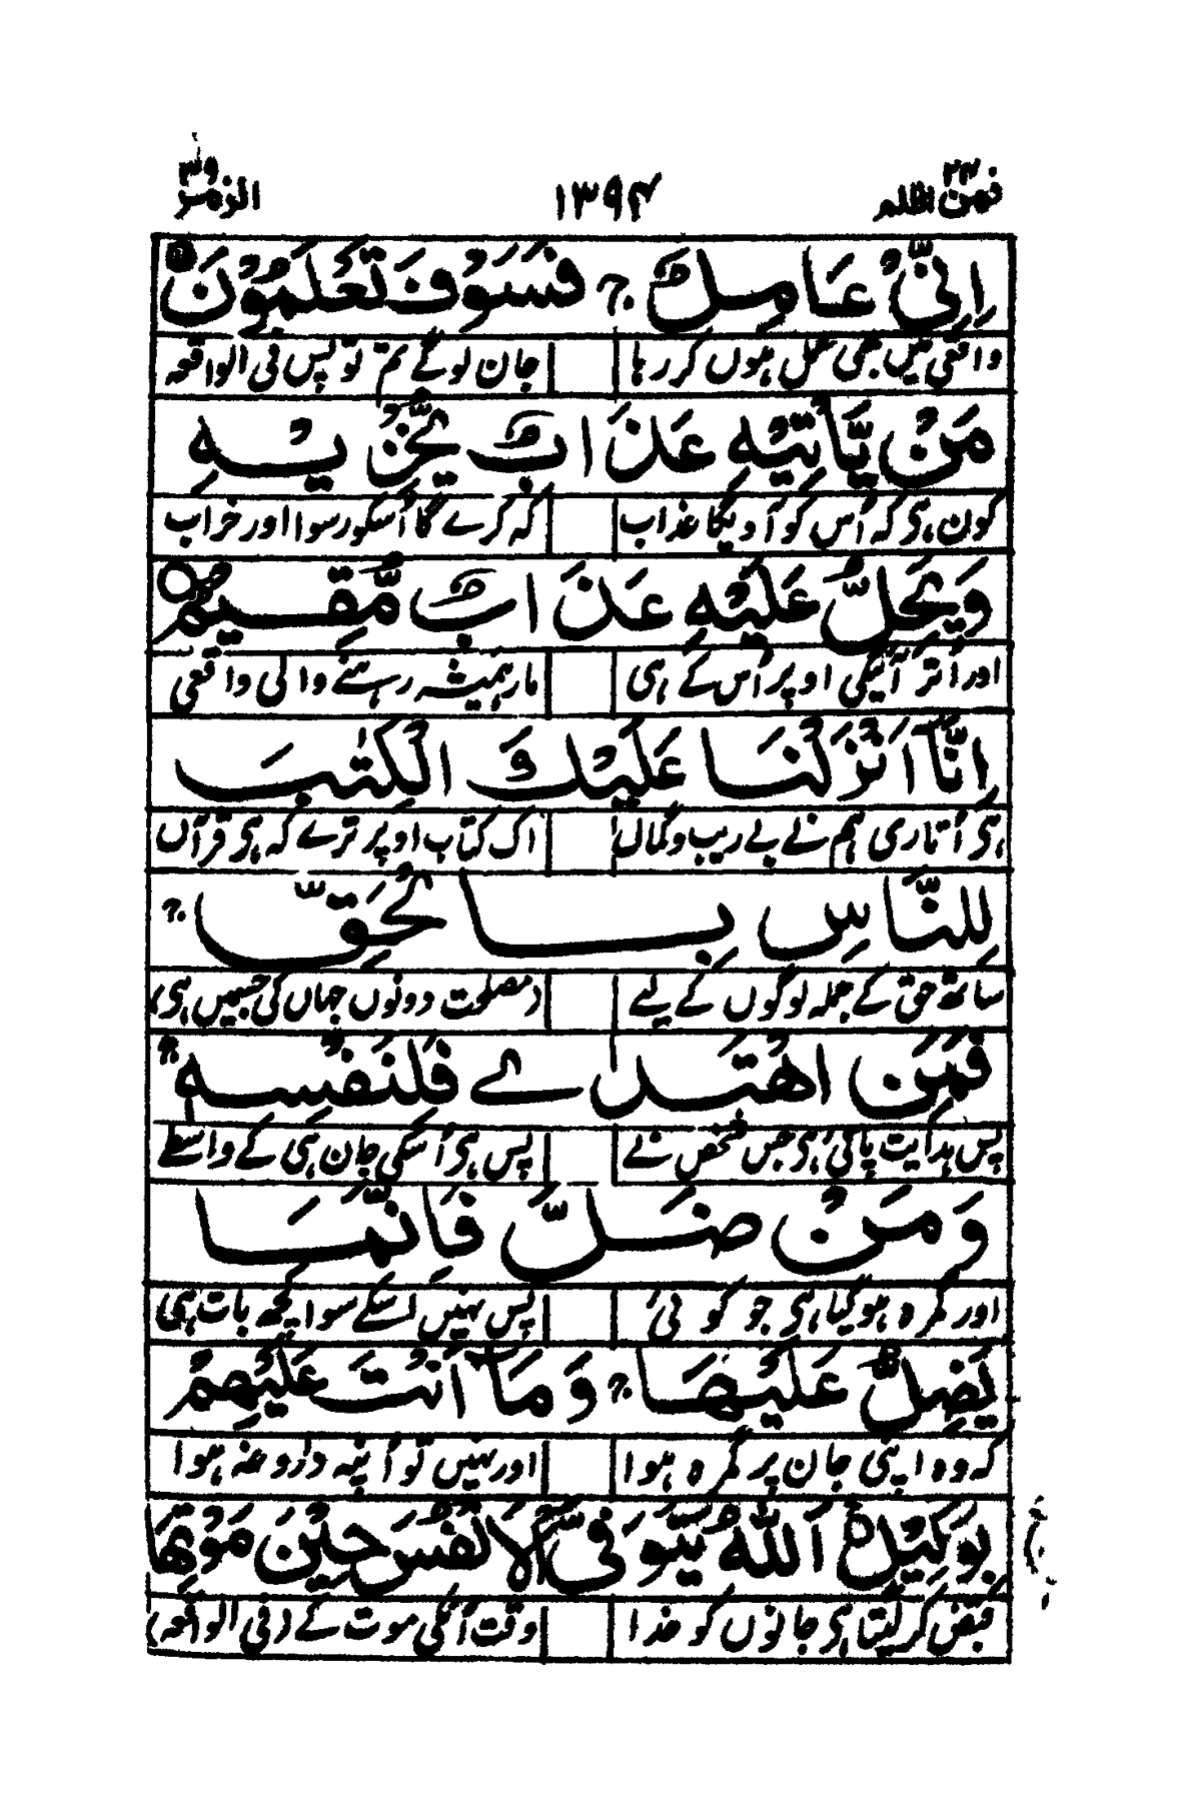 فمن اظلم ۲۴ ۱۳۹۴ الزمر ۳۹
اِنِّیْ عَامِلٌ ج فَسَوْفَ تَعْلَمُوْنَ
واقعی میں بھی عمل ہوں کر رہا جان لوگے تم تو پس فی الواقعہ
مَنْ یَّاْتِیْهِ عَذَابٌ یُّخْزِیْهِ
کون ہی کہ اُس کو آویگا عذاب کہ کرے گا اُسکو رسوا اور خراب
وَیَحِلُّ عَلَیْهِ عَذَابٌ مُّقِیْمٌ
اور اُتر آئیگی اوپر اُس کے ہی مار ہمیشہ رہنے والی واقعی
اِنَّاۤ اَنْزَلْنَا عَلَیْكَ الْكِتٰبَ
ہی اُتاری ہم نے بے ریب و گمال اک کتاب اوپر ترے کہ ہی قرآں
لِلنَّاسِ بِالْحَقِّ ج
ساتھ حق کے جملہ لوگوں کے لیے (مصلحت دونوں جہاں کی جسمیں ہی)
فَمَنِ اهْتَدٰے فَلِنَفْسِهٖ ج
پس ہدایت پائی ہی جس شخص نے پس ہی اُسکی جان ہی کے واسطے
وَمَنْ ضَلَّ فَاِنَّمَا
اور گمرہ ہوگیا ہی جو کوئی پس نہیں اسکے سوا کچھ بات ہی
یَضِلُّ عَلَیْهَا ج وَمَاۤ اَنْتَ عَلَیْهِمْ
کہ وہ اپنی جان پر گمرہ ہوا اور نہیں تو اُنپہ داروغہ ہوا
بِوَكِیْلٍ اَللّٰهُ یَتَوَفَّی الْاَنْفُسَ حِیْنَ مَوْتِهَا
قبض کر لیتا ہی جانوں کو خدا وقت اُنکی موت کے (فی الواقعہ)